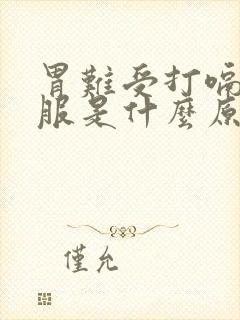 胃難受打嗝
服是什麼原
僅允